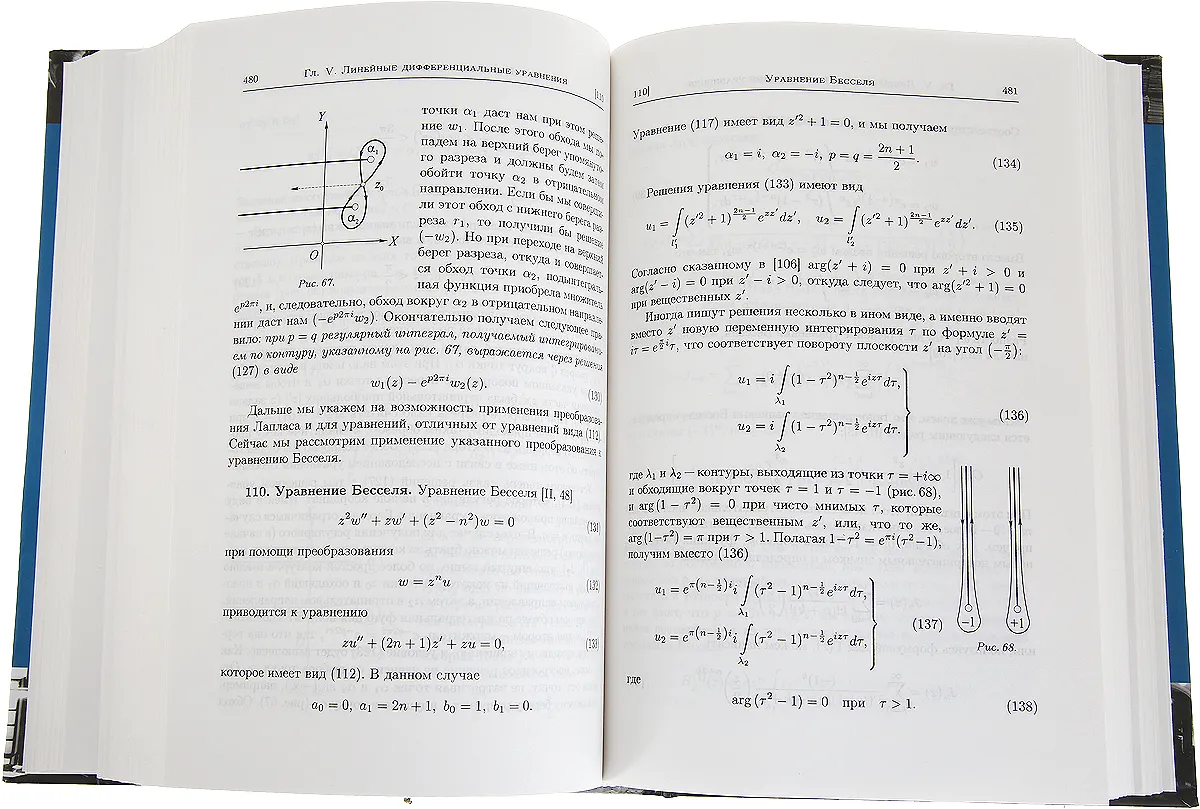 480 Гл. V. Линейные дифференциальные уравнения [110
Y
α₁
z₀
α₂
X
O
Рис. 67.
точки α₁ даст нам при этом реше-
ние w₁. После этого обхода мы по-
падем на верхний берег упомянуто-
го разреза и должны будем затем
обойти точку α₂ в отрицательном
направлении. Если бы мы соверши-
ли этот обход с нижнего берега раз-
реза r₁, то получили бы решение
(−w₂). Но при переходе на верхний
берег разреза, откуда и совершает-
ся обход точки α₂, подынтеграль-
ная функция приобрела множитель
e^{p2πi}, и, следовательно, обход вокруг α₂ в отрицательном направле-
нии даст нам (−e^{p2πi}w₂). Окончательно получаем следующее пра-
вило: при p = q регулярный интеграл, получаемый интегрировани-
ем по контуру, указанному на рис. 67, выражается через решения
(127) в виде
w₁(z) − e^{p2πi}w₂(z). (130)
Дальше мы укажем на возможность применения преобразова-
ния Лапласа и для уравнений, отличных от уравнений вида (112).
Сейчас мы рассмотрим применение указанного преобразования к
уравнению Бесселя.
110. Уравнение Бесселя. Уравнение Бесселя [II, 48]
z²w″ + zw′ + (z² − n²)w = 0 (131)
при помощи преобразования
w = zⁿu (132)
приводится к уравнению
zu″ + (2n + 1)z′ + zu = 0, (133)
которое имеет вид (112). В данном случае
a₀ = 0, a₁ = 2n + 1, b₀ = 1, b₁ = 0.
110] Уравнение Бесселя 481
Уравнение (117) имеет вид z′² + 1 = 0, и мы получаем
α₁ = i, α₂ = −i, p = q = (2n + 1)/2. (134)
Решения уравнения (133) имеют вид
u₁ = ∫_{l′₁} (z′² + 1)^{(2n−1)/2} e^{zz′} dz′, u₂ = ∫_{l′₂} (z′² + 1)^{(2n−1)/2} e^{zz′} dz′. (135)
Согласно сказанному в [106] arg(z′ + i) = 0 при z′ + i > 0 и
arg(z′ − i) = 0 при z′ − i > 0, откуда следует, что arg(z′² + 1) = 0
при вещественных z′.
Иногда пишут решения несколько в ином виде, а именно вводят
вместо z′ новую переменную интегрирования τ по формуле z′ =
iτ = e^{(π/2)i}τ, что соответствует повороту плоскости z′ на угол (−π/2):
u₁ = i ∫_{λ₁} (1 − τ²)^{n−1/2} e^{izτ} dτ,
u₂ = i ∫_{λ₂} (1 − τ²)^{n−1/2} e^{izτ} dτ. (136)
где λ₁ и λ₂ — контуры, выходящие из точки τ = +i∞
и обходящие вокруг точек τ = 1 и τ = −1 (рис. 68),
и arg (1 − τ²) = 0 при чисто мнимых τ, которые
соответствуют вещественным z′, или, что то же,
arg (1−τ²) = π при τ > 1. Полагая 1−τ² = e^{πi}(τ²−1),
получим вместо (136)
u₁ = e^{π(n−1/2)i} i ∫_{λ₁} (τ² − 1)^{n−1/2} e^{izτ} dτ,
u₂ = e^{π(n−1/2)i} i ∫_{λ₂} (τ² − 1)^{n−1/2} e^{izτ} dτ, (137)
−1 +1
Рис. 68.
где
arg (τ² − 1) = 0 при τ > 1. (138)